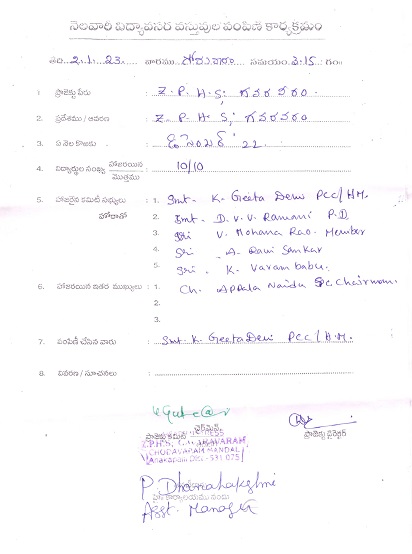 నెలవారీ విద్యావసర వస్తువుల పంపిణీ కార్యక్రమం
తేది 2.1.23. వారము సోమవారం సమయం 3.15 గం॥
1 ప్రాజెక్టు పేరు : Z. P. H. S; గవరవరం
2. ప్రదేశము / ఆవరణ : Z. P. H. S; గవరవరం
3. ఏ నెల కొరకు : డిసెంబర్ 22
4. విద్యార్థుల సంఖ్య హాజరయిన మొత్తము : 10/10
5. హాజరైన కమిటీ సభ్యులు హోదాతో : 1. Smt. K. Geeta Devi PCC/HM.
2. Smt. D. V. V. Ramani P.D.
3. Sri V. Mohana Rao. Member
4. Sri A. Ravi Sankar
5. Sri. K. Varam babu.
6. హాజరయిన ఇతర ముఖ్యులు : 1. Ch. Appala Naidu PC. Chairman.
2.
3.
7. పంపిణీ చేసిన వారు : Smt. K. Geeta Devi PCC/H.M.
8. వివరణ / సూచనలు :
ఛైర్మన్
ప్రాజెక్టు కమిటీ
ప్రాజెక్టు డైరెక్టర్
CHODAVARAM MANDAL
Anakapalli Dist.- 531 075
P. Dhanalakshmi
Asst. Manager